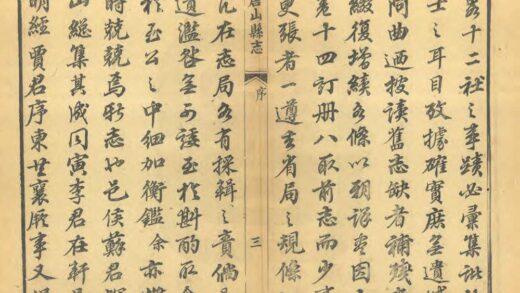 十二社之事蹟必彙集
士之耳目攷據確實庶無遺
同曲迺披讀舊志缺者補殘
綴復增績各條以期詳盡因
卷十四訂册八取前志而少
更張者一遵省局之規條
唐山縣志
序
三
凡在志局各有採輯之責倘
遺濫咎無可諉至於斟酌取
於至公之中細加衡鑑余亦
時兢兢焉斯志也邑侯蘇君
山總集其成同寅李君在軒
明經賈君序東共襄厥事又